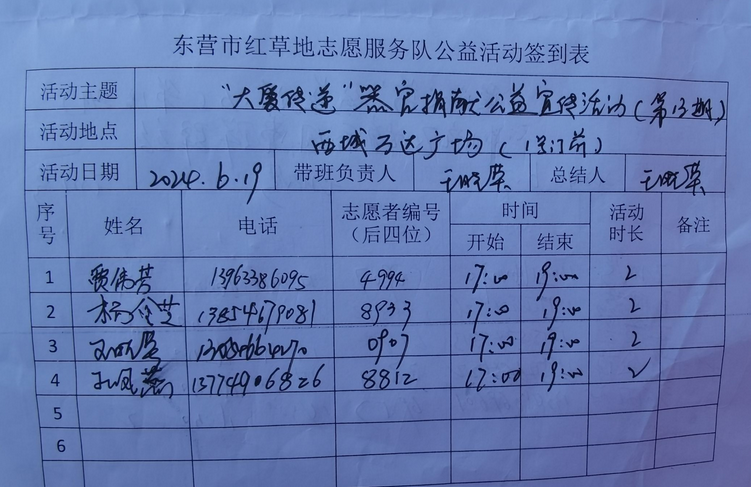 东营市红草地志愿服务队公益活动签到表
活动主题 “大爱传递”器官捐献公益宣传活动(第13期)
活动地点 西城万达广场(1号门前)
活动日期 2024.6.19 带班负责人 王晓荣 总结人 王晓荣
序号 姓名 电话 志愿者编号(后四位) 时间 开始 结束 活动时长 备注
1 贾伟芳 13963386095 4994 17:00 19:00 2
2 8933 17:00 19:00 2
3 0907 17:00 19:00 2
4 13774906826 8812 17:00 19:00 2
5
6